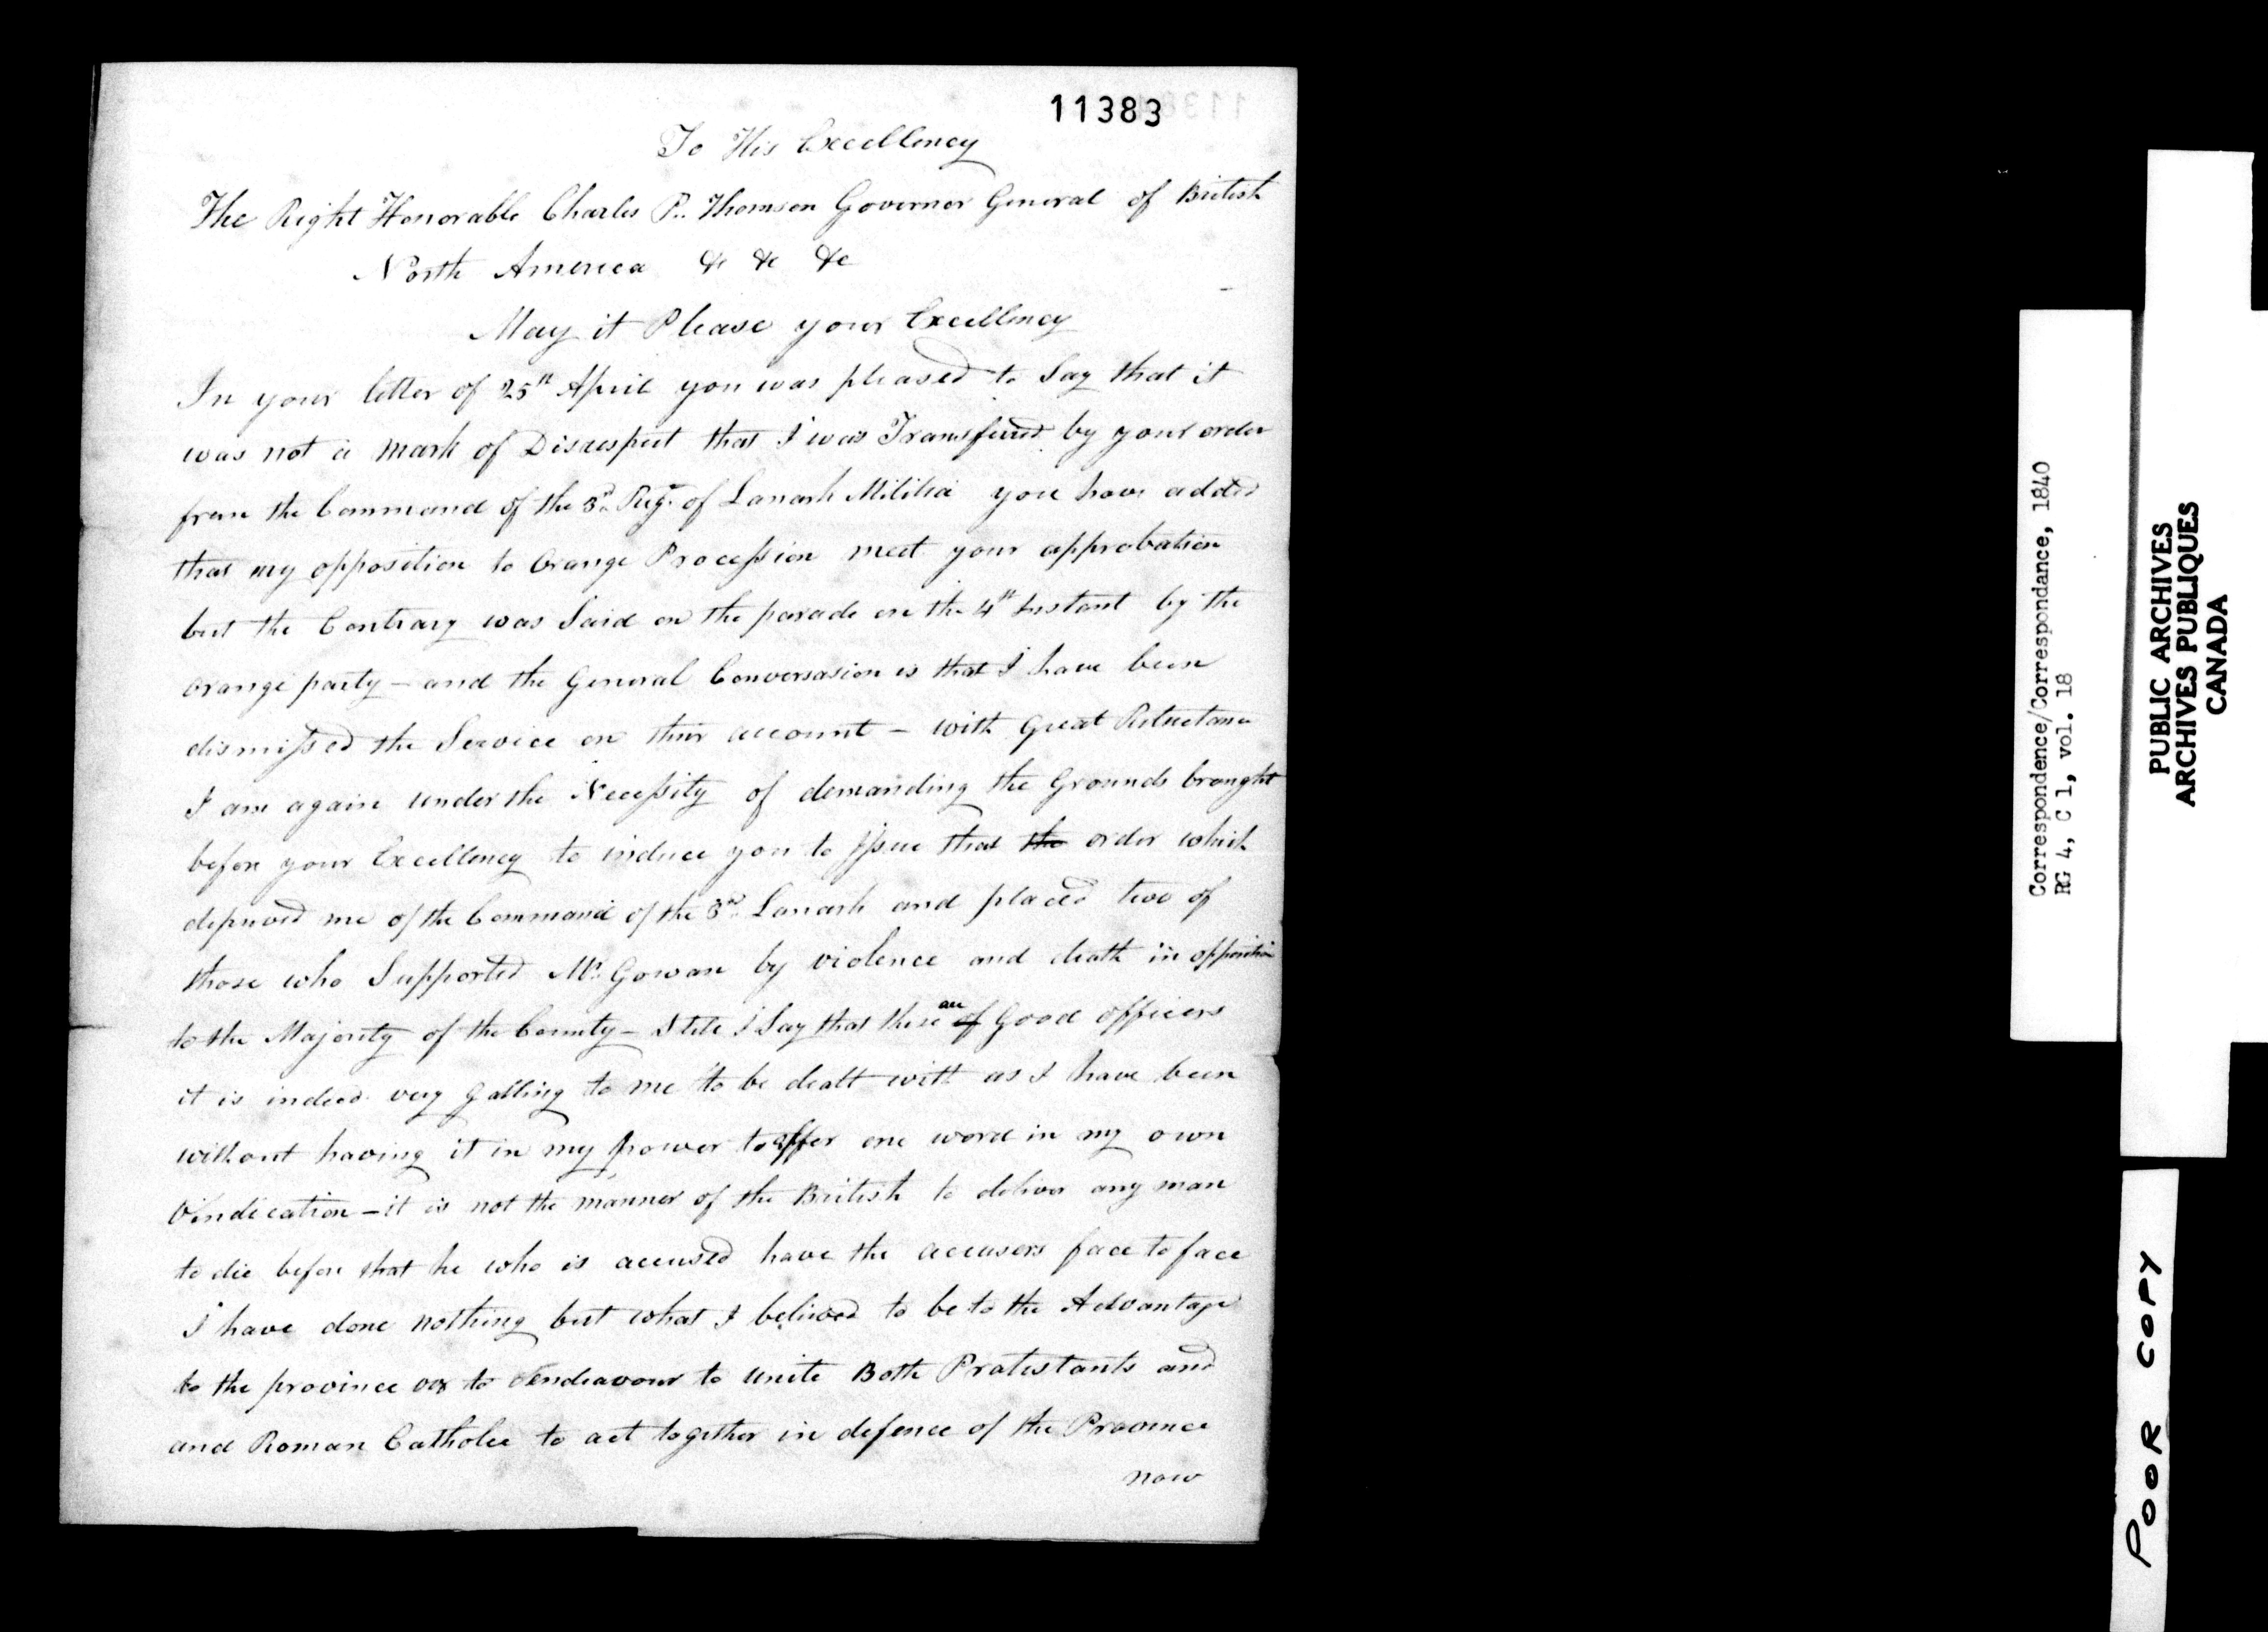 11383
To His Excellency
The Right Honorable Charles P. Thomson Governor General of British
North America &c &c &c
May it Please your Excellency
In your letter of 25th April you was pleased to Say that it
was not a mark of Disrespect that I was Transferred by your order
from the Command of the 3rd Regt of Lanark Militia you have added
that my opposition to Orange Procession meet your approbation
but the Contrary was Said on the parade on the 4th Instant by the
orange party - and the General Conversasion is that I have been
dismissed the Service on their account - with Great Reluctance
I am again under the Necessity of demanding the Grounds brought
before your Excellency to induce you to Issue that the order which
deprived me of the Command of the 3rd Lanark and placed two of
those who Supported Mr. Gowan by violence and death in opposition
to the Majority of the County - Still I Say that these are of Good officers
it is indeed very Galling to me to be dealt with as I have been
without having it in my power to offer one word in my own
Vindication - it is not the manner of the British to deliver any man
to die before that he who is accused have the accusers face to face
I have done nothing but what I believed to be to the Advantage
to the province or to Endeavour to unite Both Protestants and
and Roman Catholic to act together in defence of the Province
now
Correspondence/Correspondance, 1840
RG 4, C 1, vol. 18
PUBLIC ARCHIVES
ARCHIVES PUBLIQUES
CANADA
POOR COPY